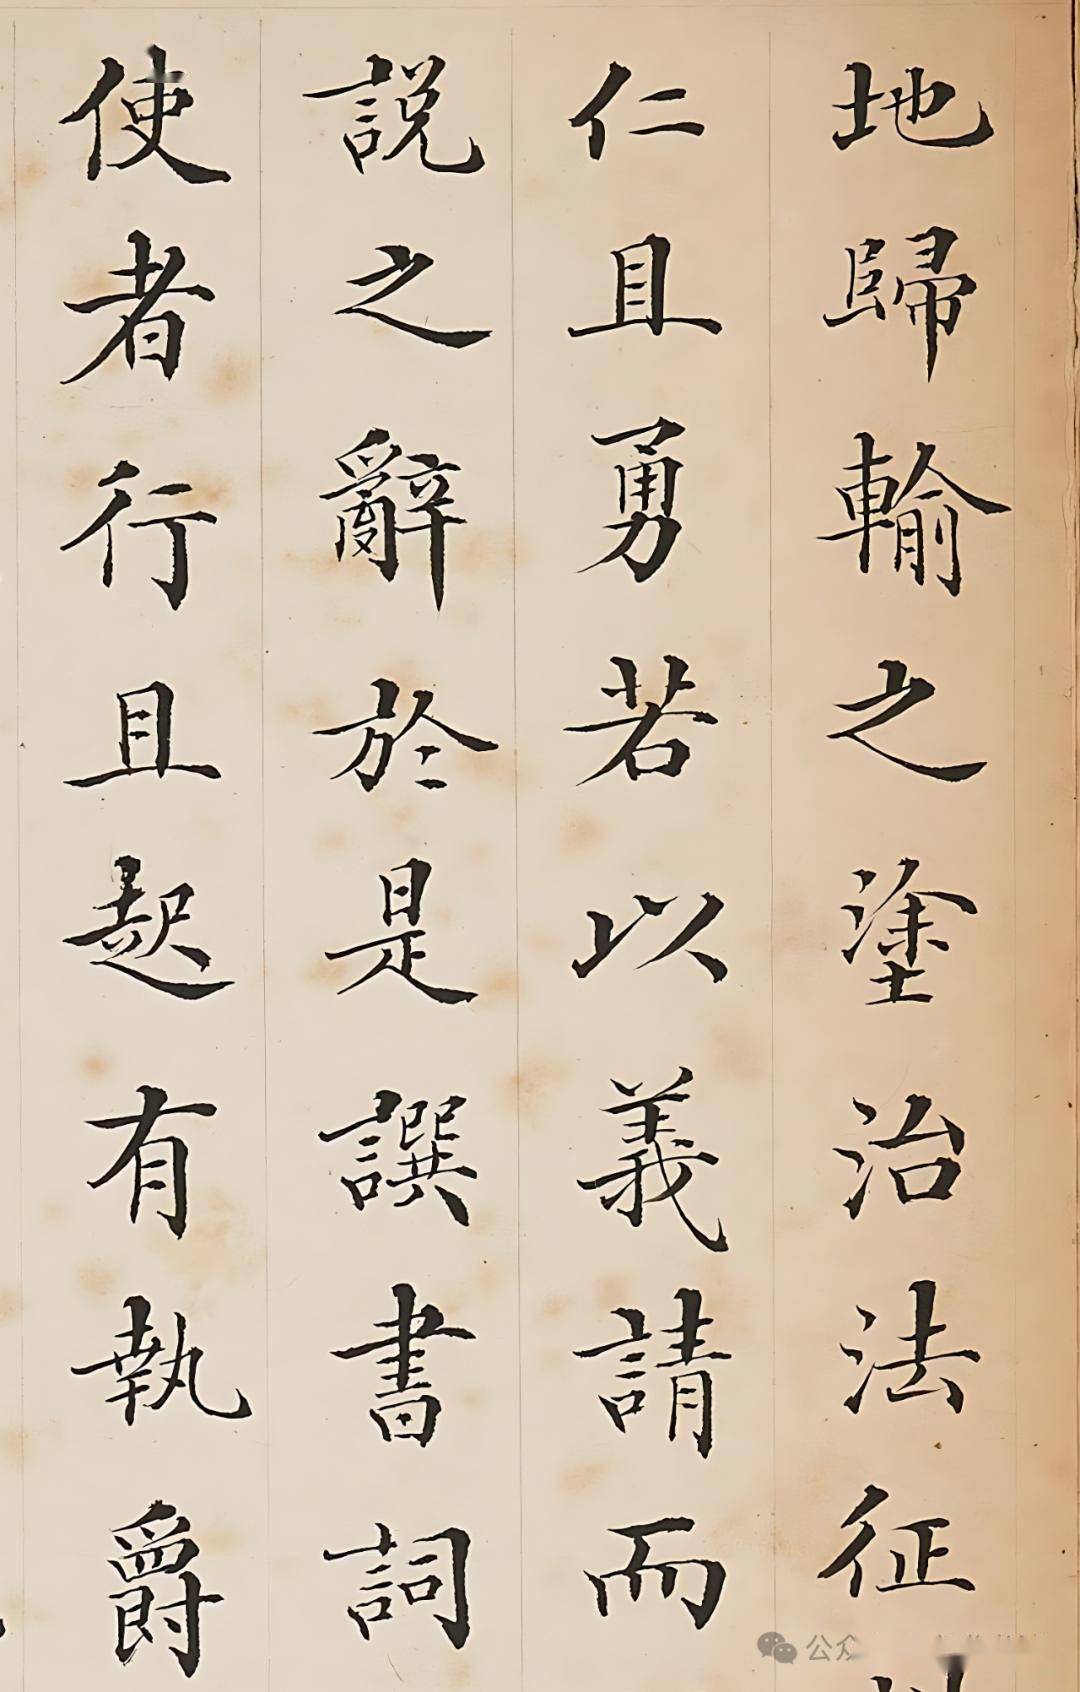 地歸輸之塗治法征
仁且勇若以義請而
說之辭於是譔書詞
使者行且起有執爵
公众